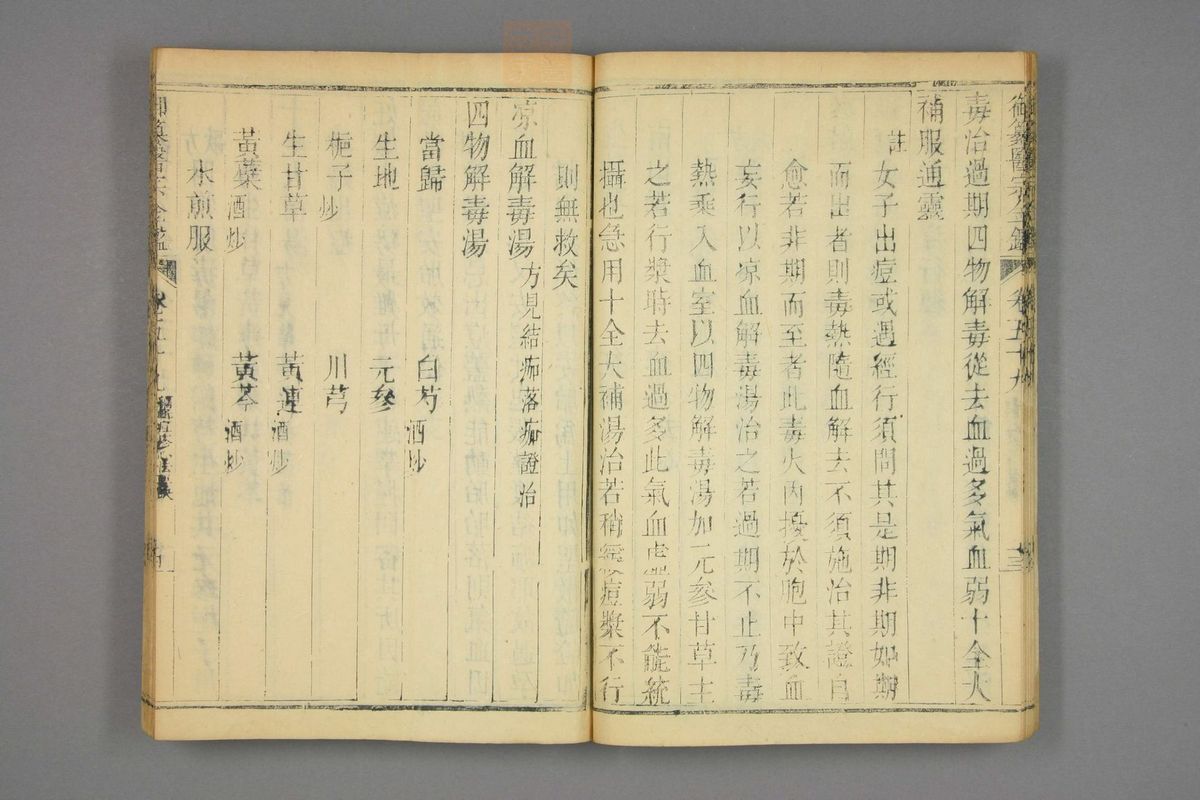 御纂醫宗金鑑 卷五十九 十三
毒治過期四物解毒從去血過多氣血弱十全大
補服通靈
註 女子出痘或遇經行須問其是期非期如期
而出者則毒熱隨血解去不須施治其證自
愈若非期而至者此毒火內擾於胞中致血
妄行以凉血解毒湯治之若過期不止乃毒
熱乘入血室以四物解毒湯加元參甘草主
之若行漿時去血過多此氣血虛弱不能統
攝也急用十全大補湯治若稍遲痘漿不行
則無救矣
凉血解毒湯 方見結痂落痂證治
四物解毒湯
當歸 白芍 酒炒
生地 元參
梔子 炒 川芎
生甘草 黃連 酒炒
黃蘗 酒炒 黃芩 酒炒
水煎服
御纂醫宗金鑑 卷五十九